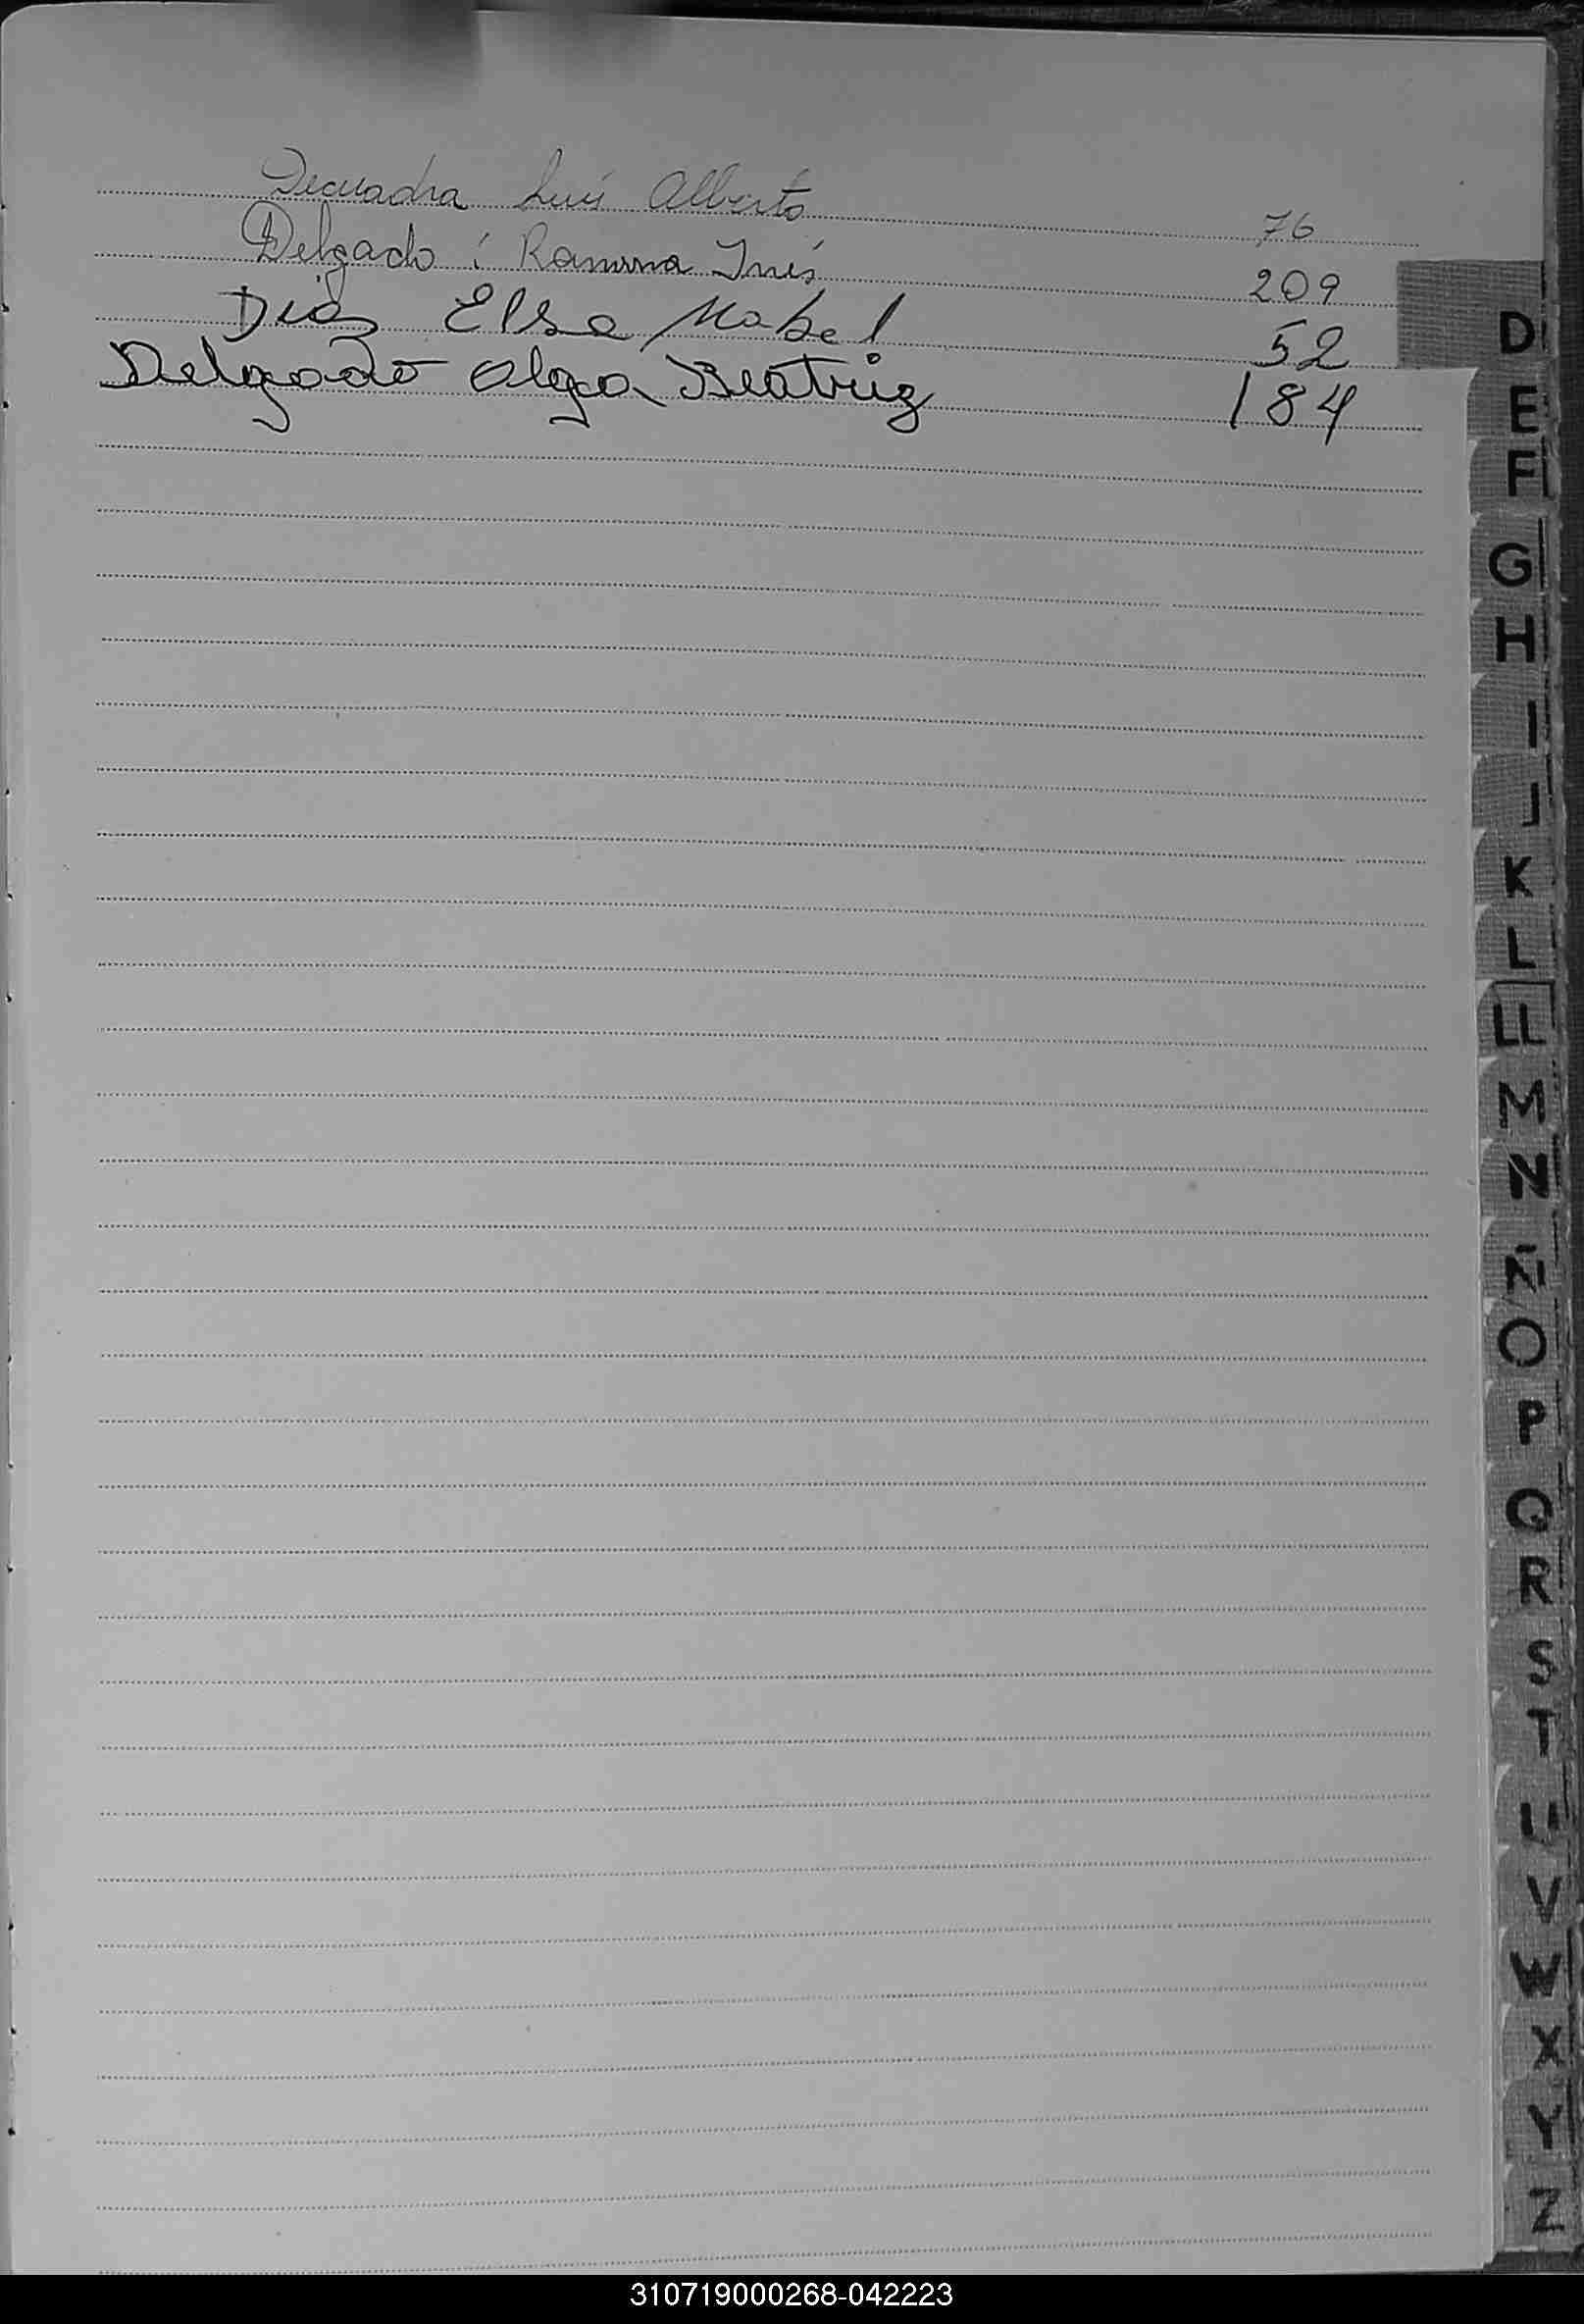 Decuadra Luis Alberto 76
Delgado : Ramona Inés 209
Diaz Elsa Mabel 52
Delgado Olga Beatriz 184
D
E
F
G
H
I
J
K
L
LL
M
N
Ñ
O
P
Q
R
S
T
U
V
W
X
Y
Z
310719000268-042223